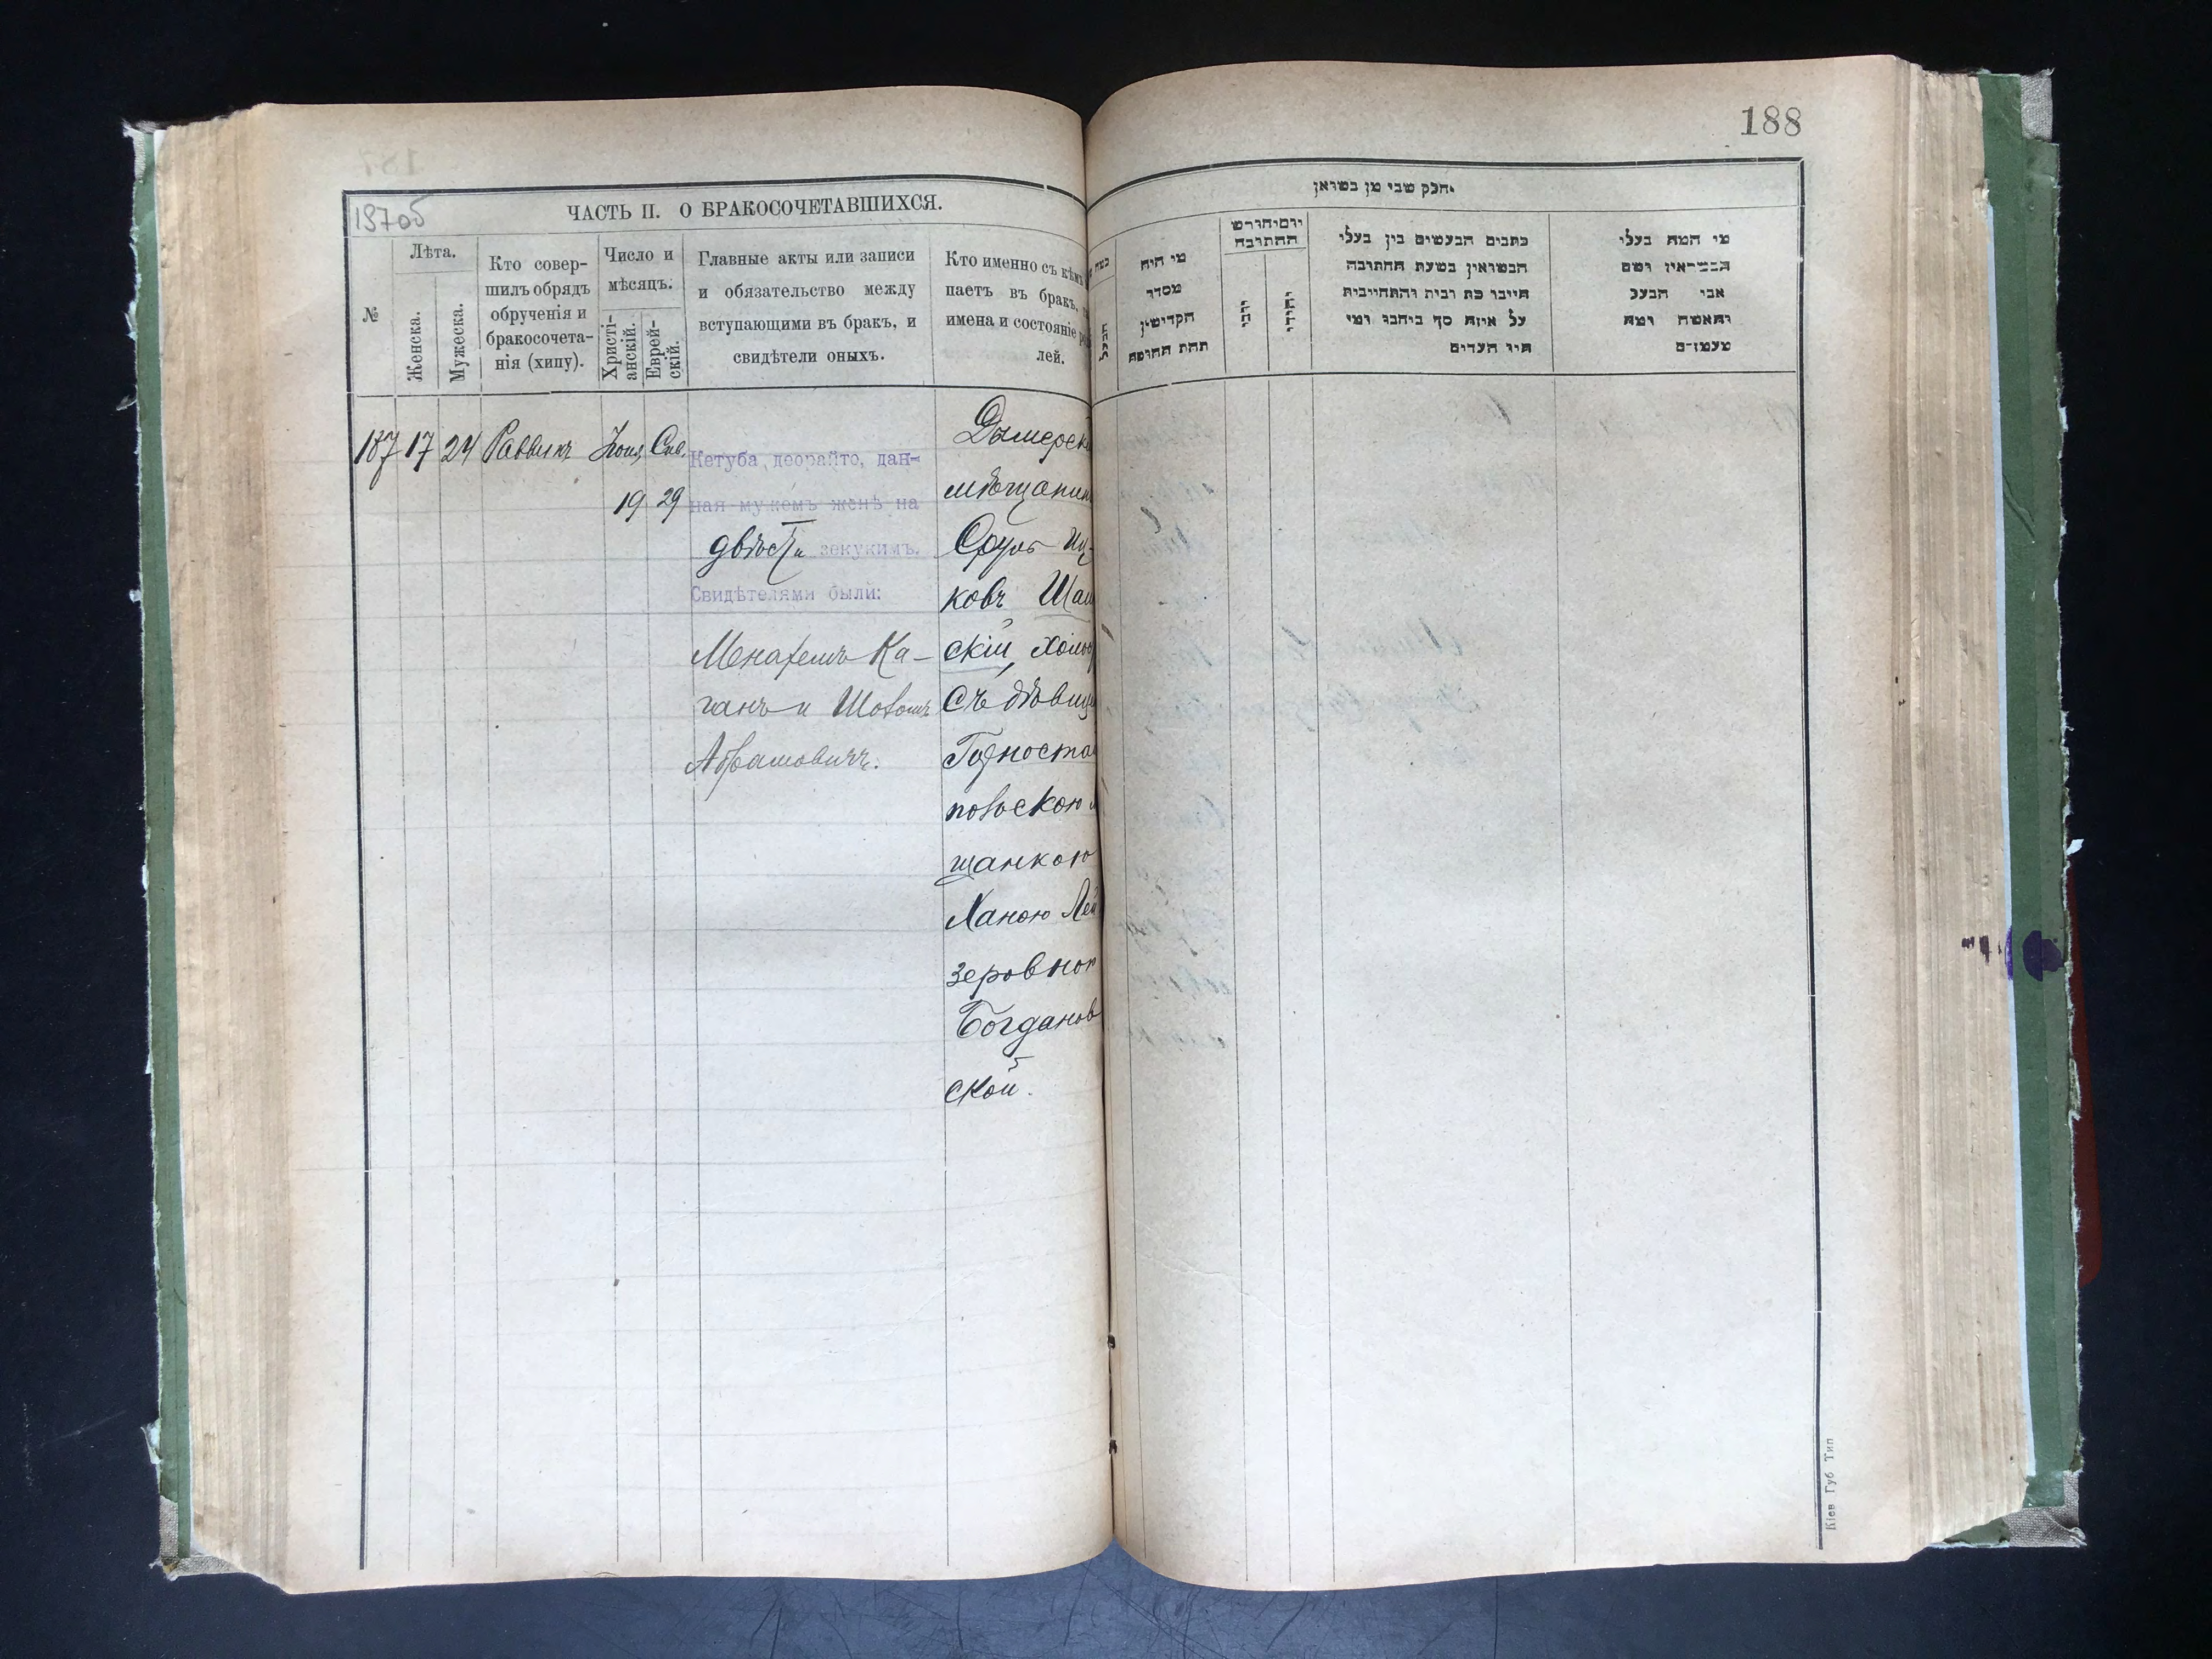 188
187об
ЧАСТЬ II. О БРАКОСОЧЕТАВШИХСЯ.
№
Лѣта.
Женска.
Мужеска.
Кто совер-
шилъ обрядъ
обрученія и
бракосочета-
нія (хипу).
Число и
мѣсяцъ.
Христі-
анскій.
Еврей-
скій.
Главные акты или записи
и обязательство между
вступающими въ бракъ, и
свидѣтели оныхъ.
Кто именно съ кѣмъ
паетъ въ бракъ,
имена и состояніе
лей.
187 17 24 Раввинъ Іюня Сив.
19 29
Кетуба деорайто, дан-
ная мужемъ женѣ на
двѣсти зекукимъ.
Свидѣтелями были:
Менахемъ Ка-
ганъ и
Абрамовичъ.
Дымерск
мѣщанин
Сруль Иц-
ковъ
скій, холос
Съ дѣвиц
Горноста
польскою
щанкою
Ханою Лей
зеровною
Богданов
ской.
חלק שני מן נשואין
הבעל
מי היה
מסדר
הקדושין
תחת החופה
יום וחודש
החתונה
נוצרי
יהודי
כתבים הנעשים בין בעלי
הנשואין בשעת החתונה
חייבו כת רבית והתחייבית
על איזה סך ביחבו ומי
היו העדים
מי המה בעלי
הנשואין ושם
אבי הבעל
והאשה ומה
מעמדם
Кіев Губ Тип